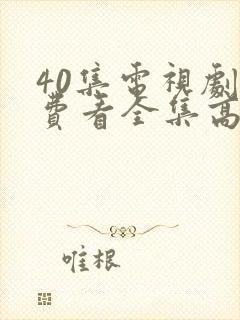 40集電視劇
費看全集高
唯根